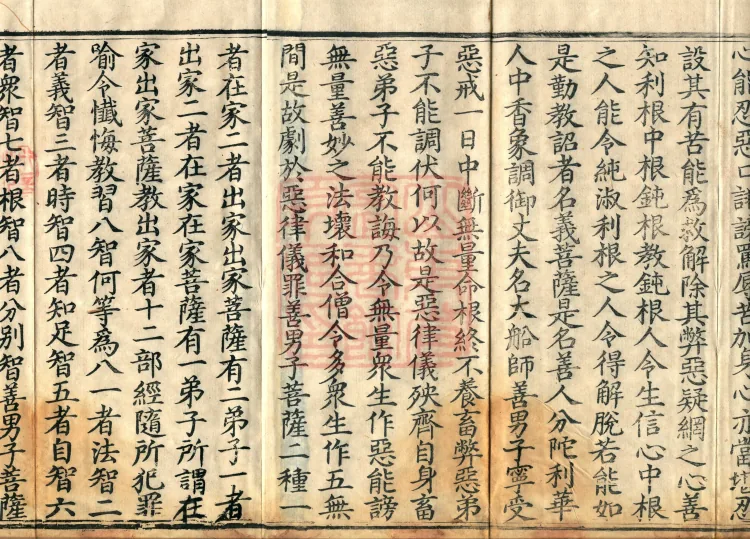 心能忍惡口誹謗罵辱若加身心亦當堪忍
設其有苦能爲救解除其弊惡疑網之心善
知利根中根鈍根教鈍根人令生信心中根
之人能令純淑利根之人令得解脫若能如
是勤教詔者名義菩薩是名善人分陀利華
人中香象調御丈夫名大船師善男子寧受
惡戒一日中斷無量命根終不養畜弊惡弟
子不能調伏何以故是惡律儀殃齊自身畜
惡弟子不能教誨乃令無量衆生作惡能謗
無量善妙之法壞和合僧令多衆生作五無
間是故劇於惡律儀罪善男子菩薩二種一
者在家二者出家出家菩薩有二弟子一者
出家二者在家在家菩薩有一弟子所謂在
家出家菩薩教出家者十二部經隨所犯罪
喻令懺悔教習八智何等為八一者法智二
者義智三者時智四者知足智五者自智六
者衆智七者根智八者分別智善男子菩薩